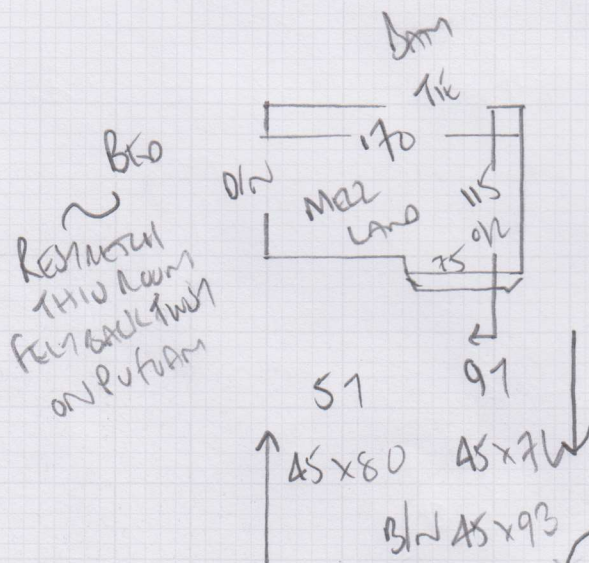 BATH
TIE
BED
170
D/N
MEZZ
LAND
115
O/L
75
RESTRETCH
THIS ROOM
FELT BACK TWIST
ON PU FOAM
51
91
45 x 80
45 x 76
B/N 45 x 93